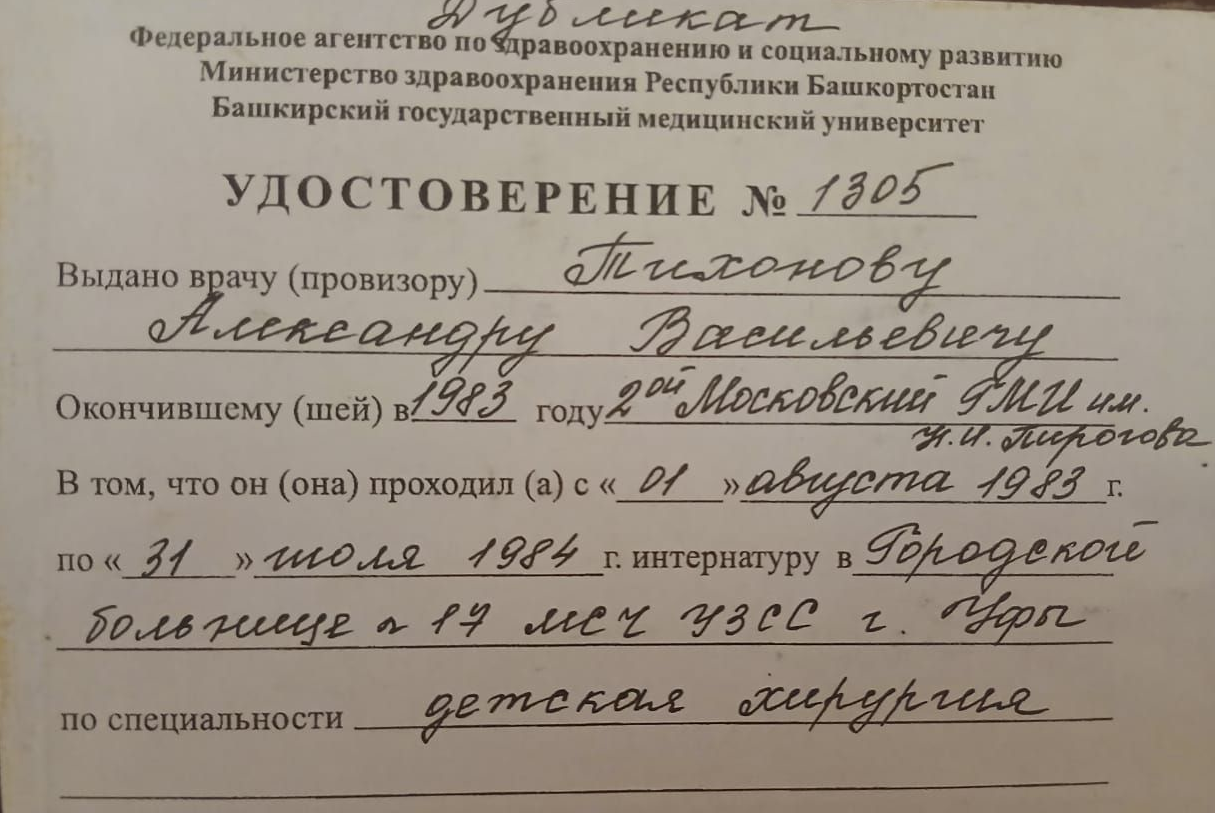 Дубликат
Федеральное агентство по здравоохранению и социальному развитию
Министерство здравоохранения Республики Башкортостан
Башкирский государственный медицинский университет
УДОСТОВЕРЕНИЕ № 1305
Выдано врачу (провизору) Тихонову
Александру Васильевичу
Окончившему (шей) в 1983 году 2ой Московский ГМИ им.
Н.И. Пирогова
В том, что он (она) проходил (а) с «01» августа 1983 г.
по «31» июля 1984 г. интернатуру в Городской
больнице № 17 МСЧ УЗСС г. Уфы
по специальности детская хирургия